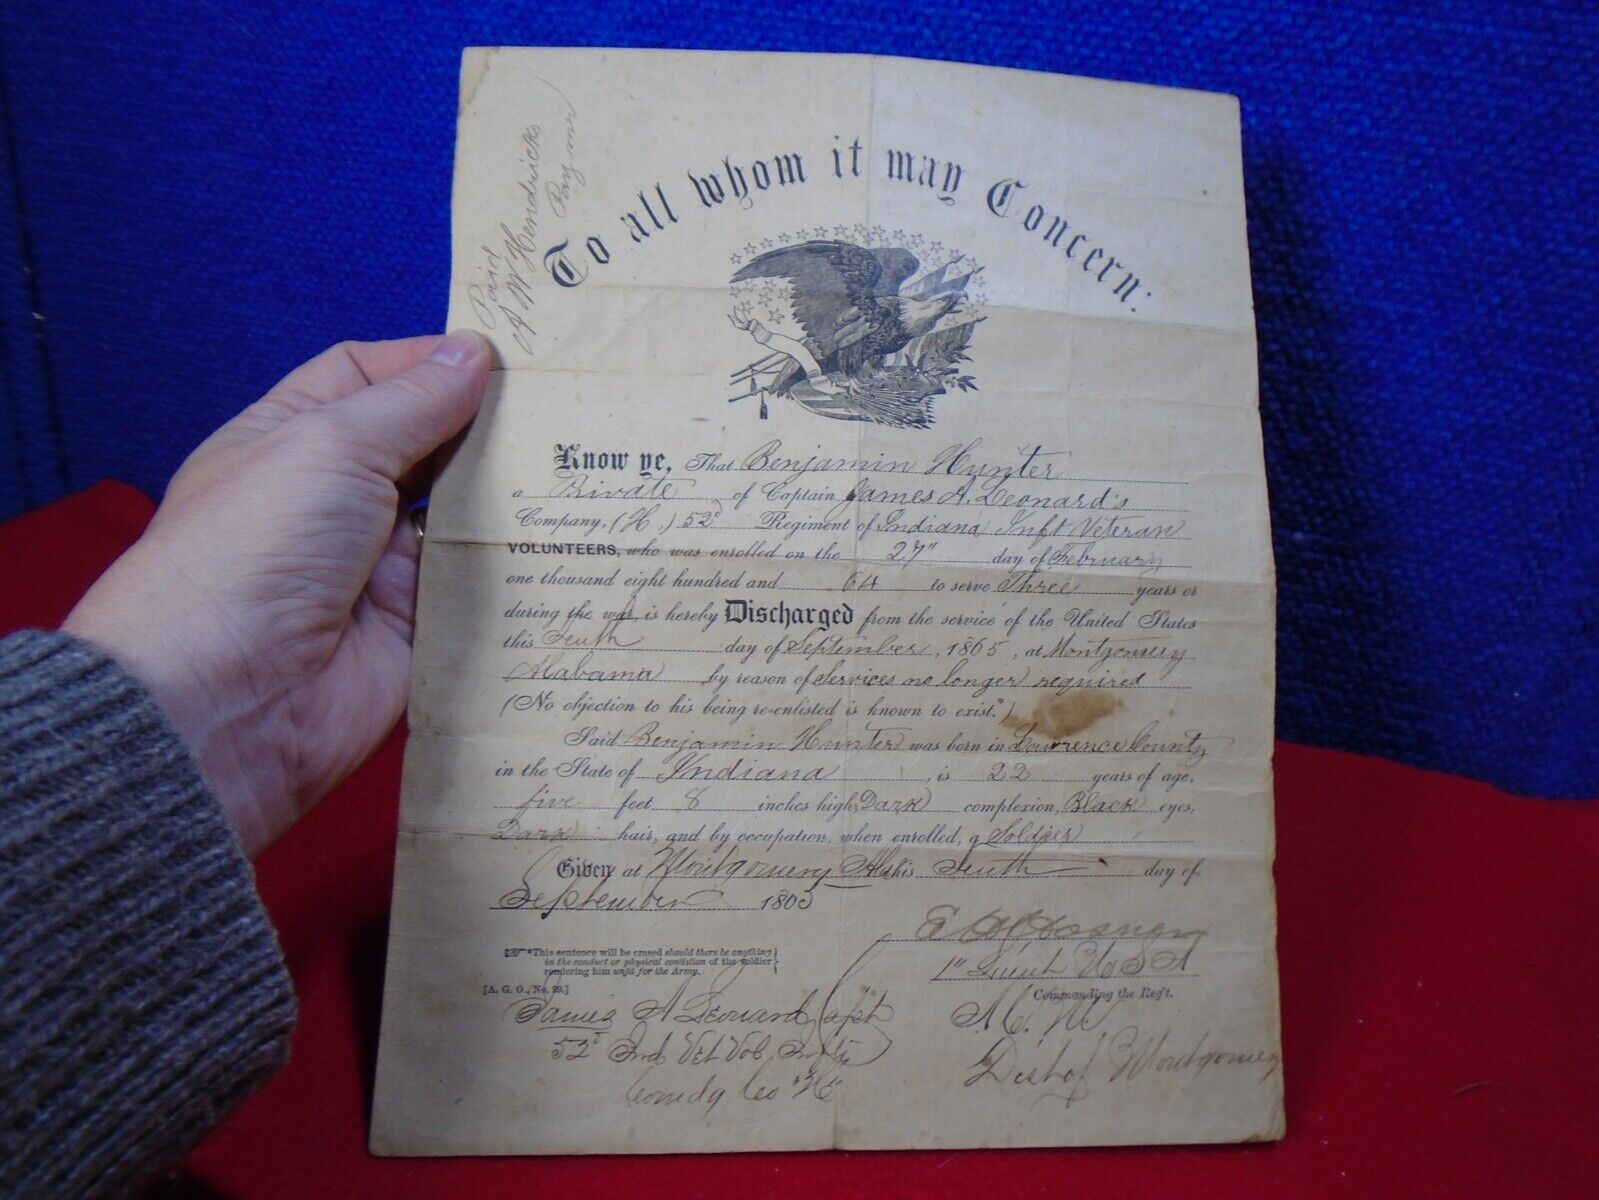 Paid
A W Hendricks
Paymr
To all whom it may Concern:
Know ye, That Benjamin Hunter
a Private of Captain James A. Leonard's
Company, (H.) 52d Regiment of Indiana Inft Veteran
VOLUNTEERS, who was enrolled on the 27" day of February
one thousand eight hundred and 64 to serve Three years or
during the war, is hereby Discharged from the service of the United States
this Tenth day of September, 1865, at Montgomery
Alabama by reason of Services no longer required
(No objection to his being re-enlisted is known to exist.*)
Said Benjamin Hunter was born in Lawrence County
in the State of Indiana, is 22 years of age,
five feet 8 inches high, Dark complexion, Black eyes,
Dark hair, and by occupation, when enrolled, a Soldier
Given at Montgomery Ala this Tenth day of
September 1865
*This sentence will be erased should there be anything
in the conduct or physical condition of the soldier
rendering him unfit for the Army.
[A. G. O., No. 99.]
1" Lieut U S A
Commanding the Reg't.
A. C. M.
Dist of Montgomery
James A Leonard Capt
52d Ind Vet Vol Infty
Comdg Co "H"